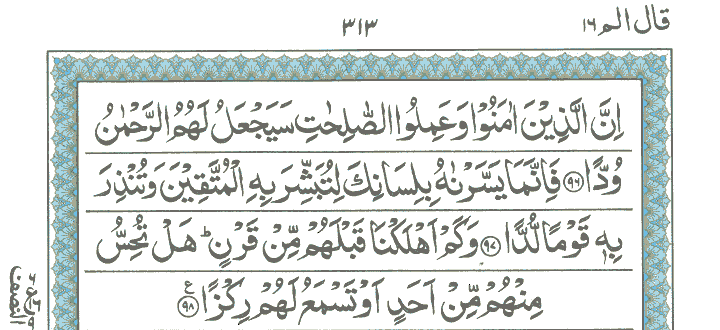 قال الم ١٦
٣١٣
اِنَّ الَّذِيْنَ اٰمَنُوْا وَعَمِلُوا الصّٰلِحٰتِ سَيَجْعَلُ لَهُمُ الرَّحْمٰنُ
وُدًّا ﴿٩٦﴾ فَاِنَّمَا يَسَّرْنٰهُ بِلِسَانِكَ لِتُبَشِّرَ بِهِ الْمُتَّقِيْنَ وَتُنْذِرَ
بِهٖ قَوْمًا لُّدًّا ﴿٩٧﴾ وَكَمْ اَهْلَكْنَا قَبْلَهُمْ مِّنْ قَرْنٍ ؕ هَلْ تُحِسُّ
مِنْهُمْ مِّنْ اَحَدٍ اَوْ تَسْمَعُ لَهُمْ رِكْزًا ﴿٩٨﴾ ع